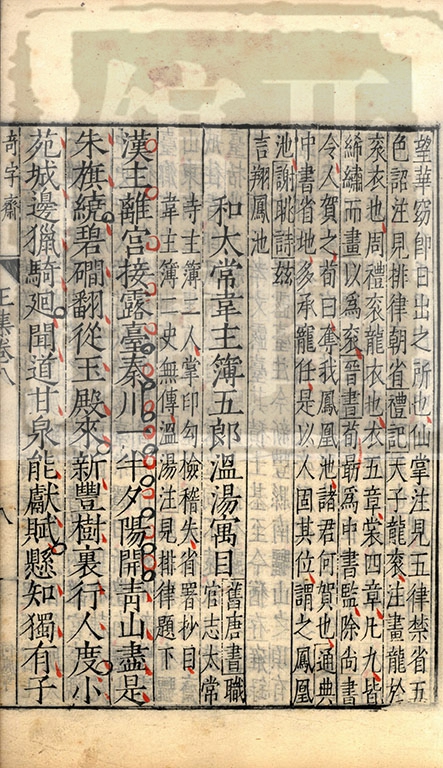 望華窈即日出之所也仙掌注見五律禁省五
色詔注見排律朝省禮記天子龍袞注畫龍於
袞衣也周禮袞龍衣也衣五章裳四章凡九皆
絺繡而畫以為袞晉書荀勗為中書監除尚書
令人賀之荀曰奪我鳳凰池諸君何賀也通典
中書省地多承寵任是以人固其位謂之鳳凰
池謝眺詩茲
言翔鳳池
和太常韋主簿五郎溫湯寓目
舊唐書職
官志太常
寺主簿二人掌印勾檢稽失省署抄目
韋主簿二史無傳溫湯注見排律題下
漢主離宮接露臺秦川一半夕陽開青山盡是
朱旗繞碧磵翻從玉殿來新豐樹裏行人度小
苑城邊獵騎廻聞道甘泉能獻賦懸知獨有子
奇字齋
王集卷八
八